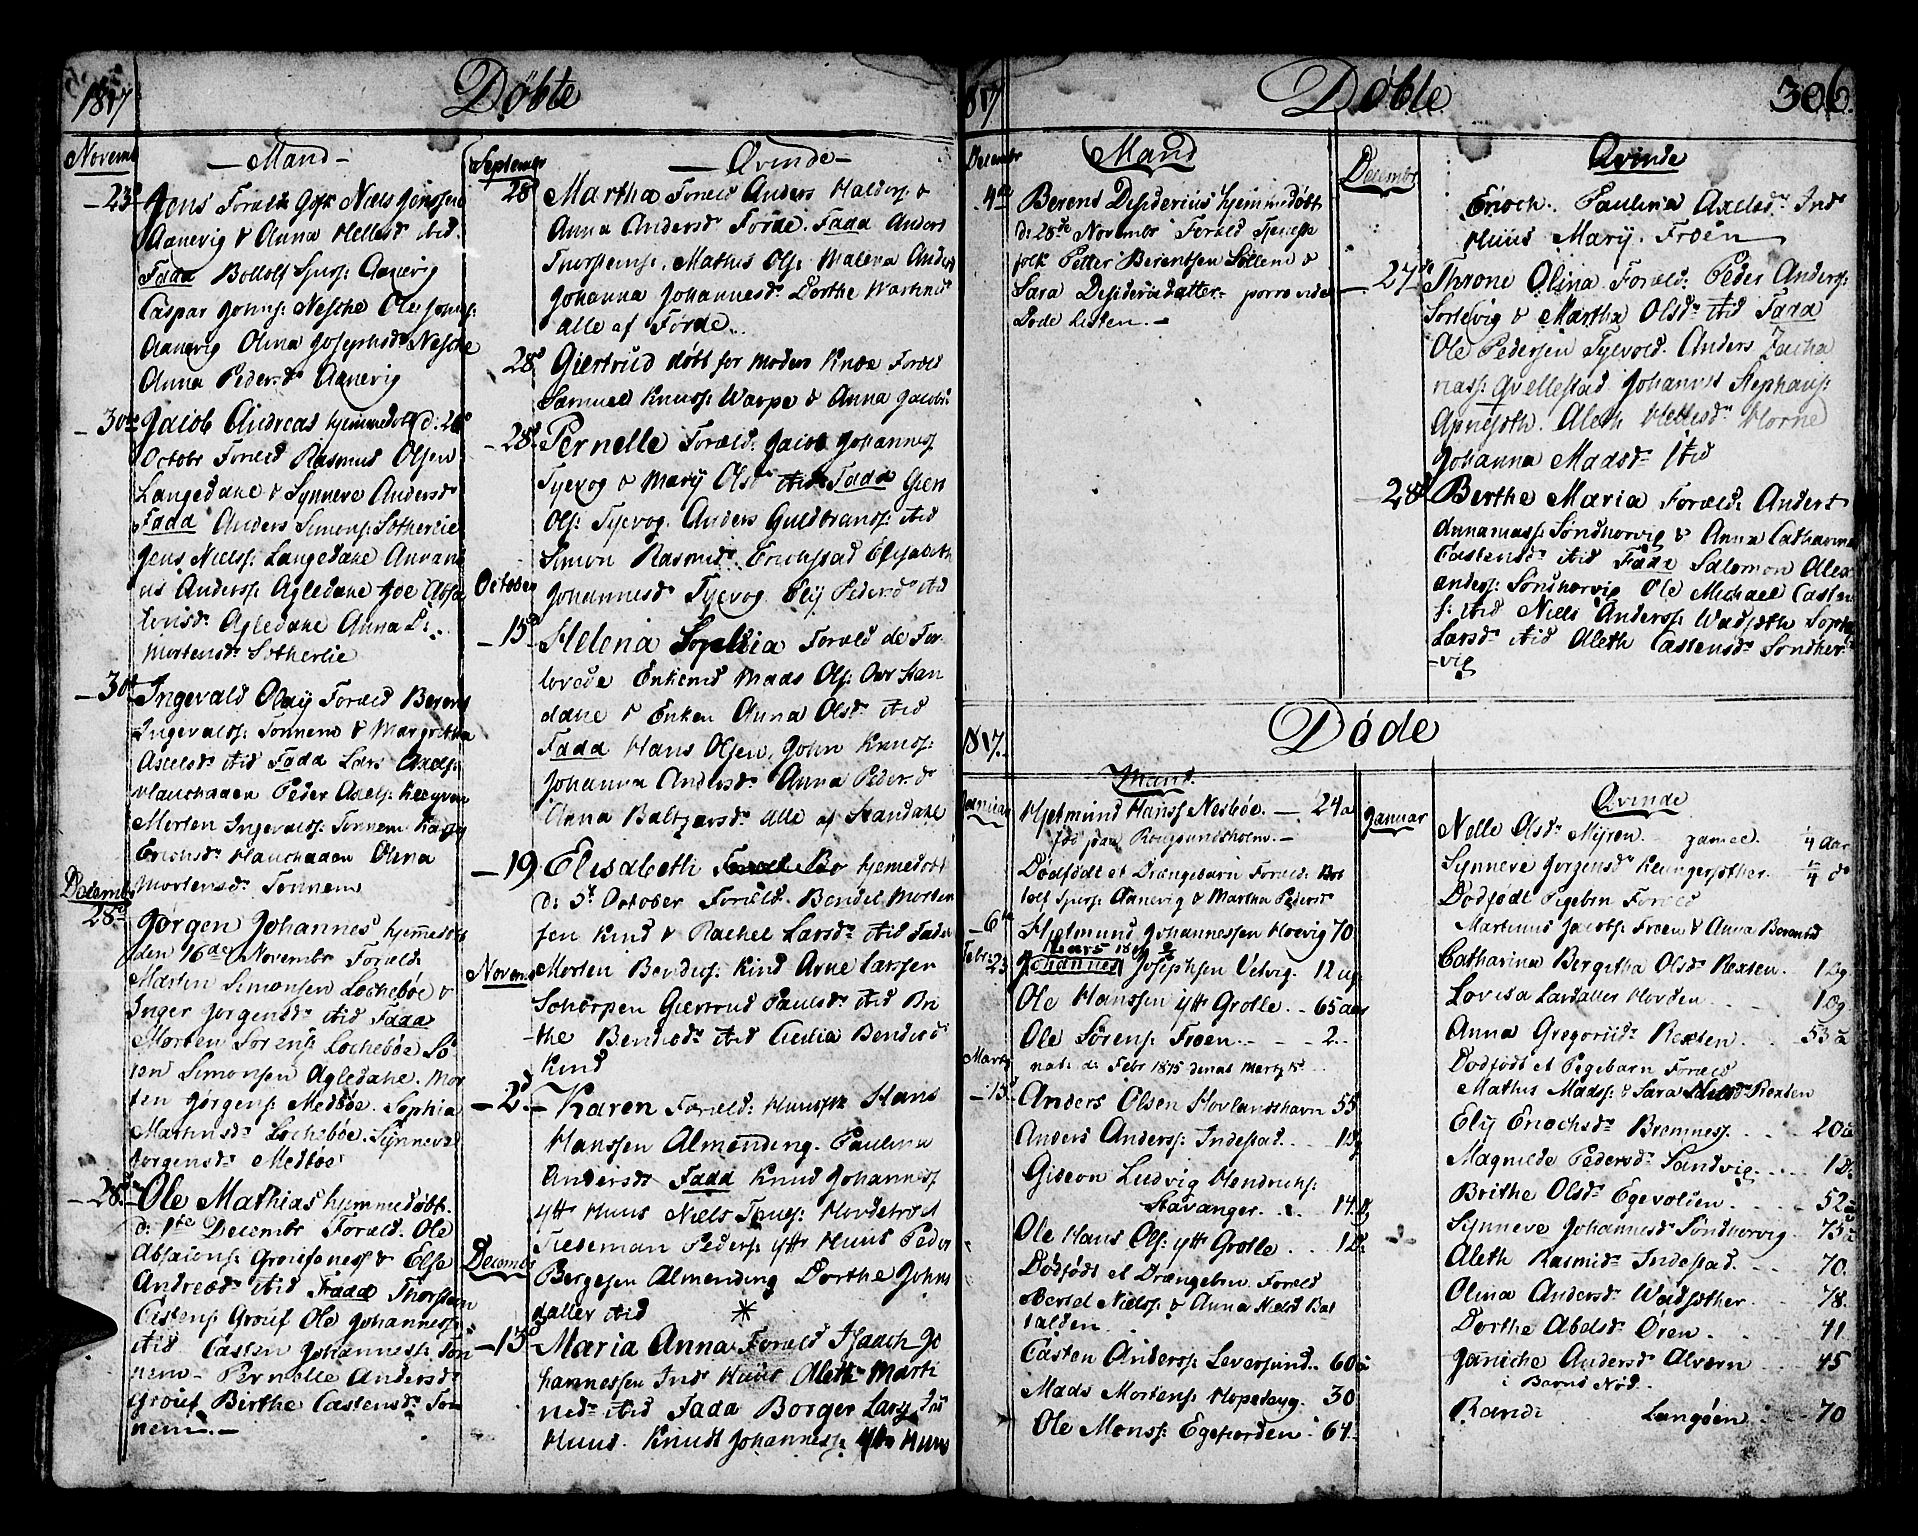 1817 Døbte
Novemb
Mand
23de Jens Foræld Gift Niels Jonssen
Aanevig & Anna Hellesd ibid.
Fadd Bottolf Spurs: Aanevig
Caspar Johns: Nesche Ole Johns:
Aanevig Olina Josephsd Nesche
Anna Pedersd Aanevig
30te Jacob Andreas hjemmedøbt d: 28d
Octobr Foræld Rasmus Olsen
Langedahe & Synneve Andersd
Fadd Anders Simons: Sotherlie
Jens Niels: Langedahe
Anders: Agledahe
Agledahe Anna
Mortensd Sotherlie
30te Ingevald Olay Foræld Berent
Ingevalds: Tonnem & Margretha
Axelsd ibid Fadd Lars Axels:
Hauchagen Peder Axels:
Morten Ingevalds: Tonnem
Erichsd Hauchagen Olina
Mortensd Tonnem
Decembr
28d Jørgen Johannes hjemmedøbt
den 16de Novembr Foræld
Morten Simonsen Lochebøe &
Inger Jørgensd ibid Fadd
Morten Sørens Lochebøe Sø
ren Simonsen Agledahe. Mor
ten Jørgens: Medbøe. Sophia
Martinsd Lochebøe. Synneve
Jørgensd Medbøe
28d Ole Mathias hjemmedøbt
d: 1te Decembr Foræld. Ole
Absalons: & Else
Andread ibid Fadd Thorstein
Castens Ole Johannes:
ibid Casten Johannes: Ton
nem - Pernelle Andersd
Birthe Castensd Ton
nem.-
Septembr
Qvinde
28d Martha Foræld Anders Haldors &
Anna Andersd Førde. Fadd Anders
Thorstens:. Mathis Ols: Malena Anders
Johanna Johannesd Dorthe Martinsd
alle af Førde.
28d Giertrud døbt for Moders Knæe Foræld
Samuel Knuds: Warpe & Anna Jacobsd
28d Pernelle Foræld: Jacob Johannes:
Tyevog & Mary Olsd ibid Fadd
Ols: Tyevog. Anders Guldbrans: ibid
Simon Rasmusd. Erichstad Elisabeth
Johannesd Tyevog. Elij Pedersd ibid
October
15d Helena Sophia Foræld de For
lovede Enkemd Mads Ols: Ovr Stan
dahe & Enken Anna Olsd ibid
Fadd Hans Olsen, John Knuds:
Johanna Andersd Anna Pedersd
Anna Baltzarsd alle af Standahe
19 Elisabeth hjemedøbt
d: 5t October Foræld. Bendix Morten
sen Kind & Rachel Larsd ibid Fadd
Morten Bendixs: Kind Arne Larsen
Schorpen Giertrud Paulsd ibid Bri
the Bendixd ibid Cicilia Bendixd
Kind
Novemb
2d Karen Foræld: Huusm Hans
Hanssen Almending. Paulina
Andersd Fadd Knud Johannes:
Ytt Huus Niels
Tiedeman Peders: Ytt Huus Peder
Bergesen Almending Dorthe Johns
datter ibid *
Decembr
13d Maria Anna Foræld Isaach Jo
hannessen Indr Huus Aleth Marti
nsd ibid Fadd Borger Lars: Ind
Huus. Knudt Johannes: Ytr Huus
1817 Døbte 306.
Decembr
Mand
4de Berent Desiderius hjemmedøbt
d: 28de Novembr Foræld Tjeneste
folk Petter Berentsen Sollem &
Sara Desideriidatter porro vide
Døde Listen.-
Decembr
Qvinde
Enoch. Paulina Axelsd Ind
Huus Mary. Froen
27de Throne Olina Foræld: Peder Anders:
Sorlevig & Martha Olsd ibid Fadd
Ole Pedersen Tyevold. Anders Zacha
rias: Qvellestad Johannes Stephans:
Apnesøth. Aleth Hellesd Horne
Johanna Madsd ibid
28d Berthe Maria Foræld: Anders
Annanias: Søndhorvig & Anna Catharina
Castensd ibid Fadd Salomon Alex
anders: Søndhorvig Ole Michael Casten
s: ibid Niels Anders: Wadsøth Sophi
Larsd ibid Aleth Castensd Søndhor
vig
1817. Døde
Januar
Mand
Hjelmund Hanss Nesbøe. 24 a
Rougsundsholm.-
Dødfødt et Drængebarn Foræld: Bot
tolf Spurs: Aanevig & Martha Pedersd
6te Hjelmund Johannessen Hoevig 70
Febr: 23 Johannes Josephsen Velvig. 12 ug
Ole Hanssen ytt Grotle. 65 aar
Ole Sørens: Froen. 2.
nat: d: Febr 1815 denat Marty 15
Marty
15d Anders Olsen Hovlandshavn 55
Anders Anders: Indestad. 1 D
Gideon Ludvig Hendrichs:
Stavanger. 14 D
Ole Hans Ols: ytt Grotle. 1 D:
Dødfødt et Drængebrn. Foræld
Bertel Niels: & Anna Nielsd Bal
talden.
Casten Anders: Leversund. 60 a
Mads Mortens: Hopebyg. 30
Ole Mons: Egefiorden. 64.
Januar
Qvinde
Nelle Olsd Myren. gamel. 1/4 aar
Synneve Jørgensd 1/4 d
Dødfødt Pigebrn Foræld
Martinus Jacobs: Froen & Anna Berentsd
Catharina Bergitha Olsd Rexten. 1 Dg.
Lovisa Larsdatter Hovden. 1 Dg.
Anna Gregoriid Rexten. 53 a
Dødfødt et Pigebarn Foræld
Mathis Mads: & Sara Rexten
Elij Enochsd Bremnes:. 20 a
Magnilde Pedersd Sandvig. 1 D.
Brithe Olsd Egevolien. 52 a
Synneve Johannesd Søndhorvig. 75 a
Aleth Rasmusd Indestad. 70.
Olina Andersd Wadsøther. 78.
Dorthe Abelsd Øren. 41
Janiche Andersd Alvørn. 45
i Barns Nød.
Randi Langøen. 70